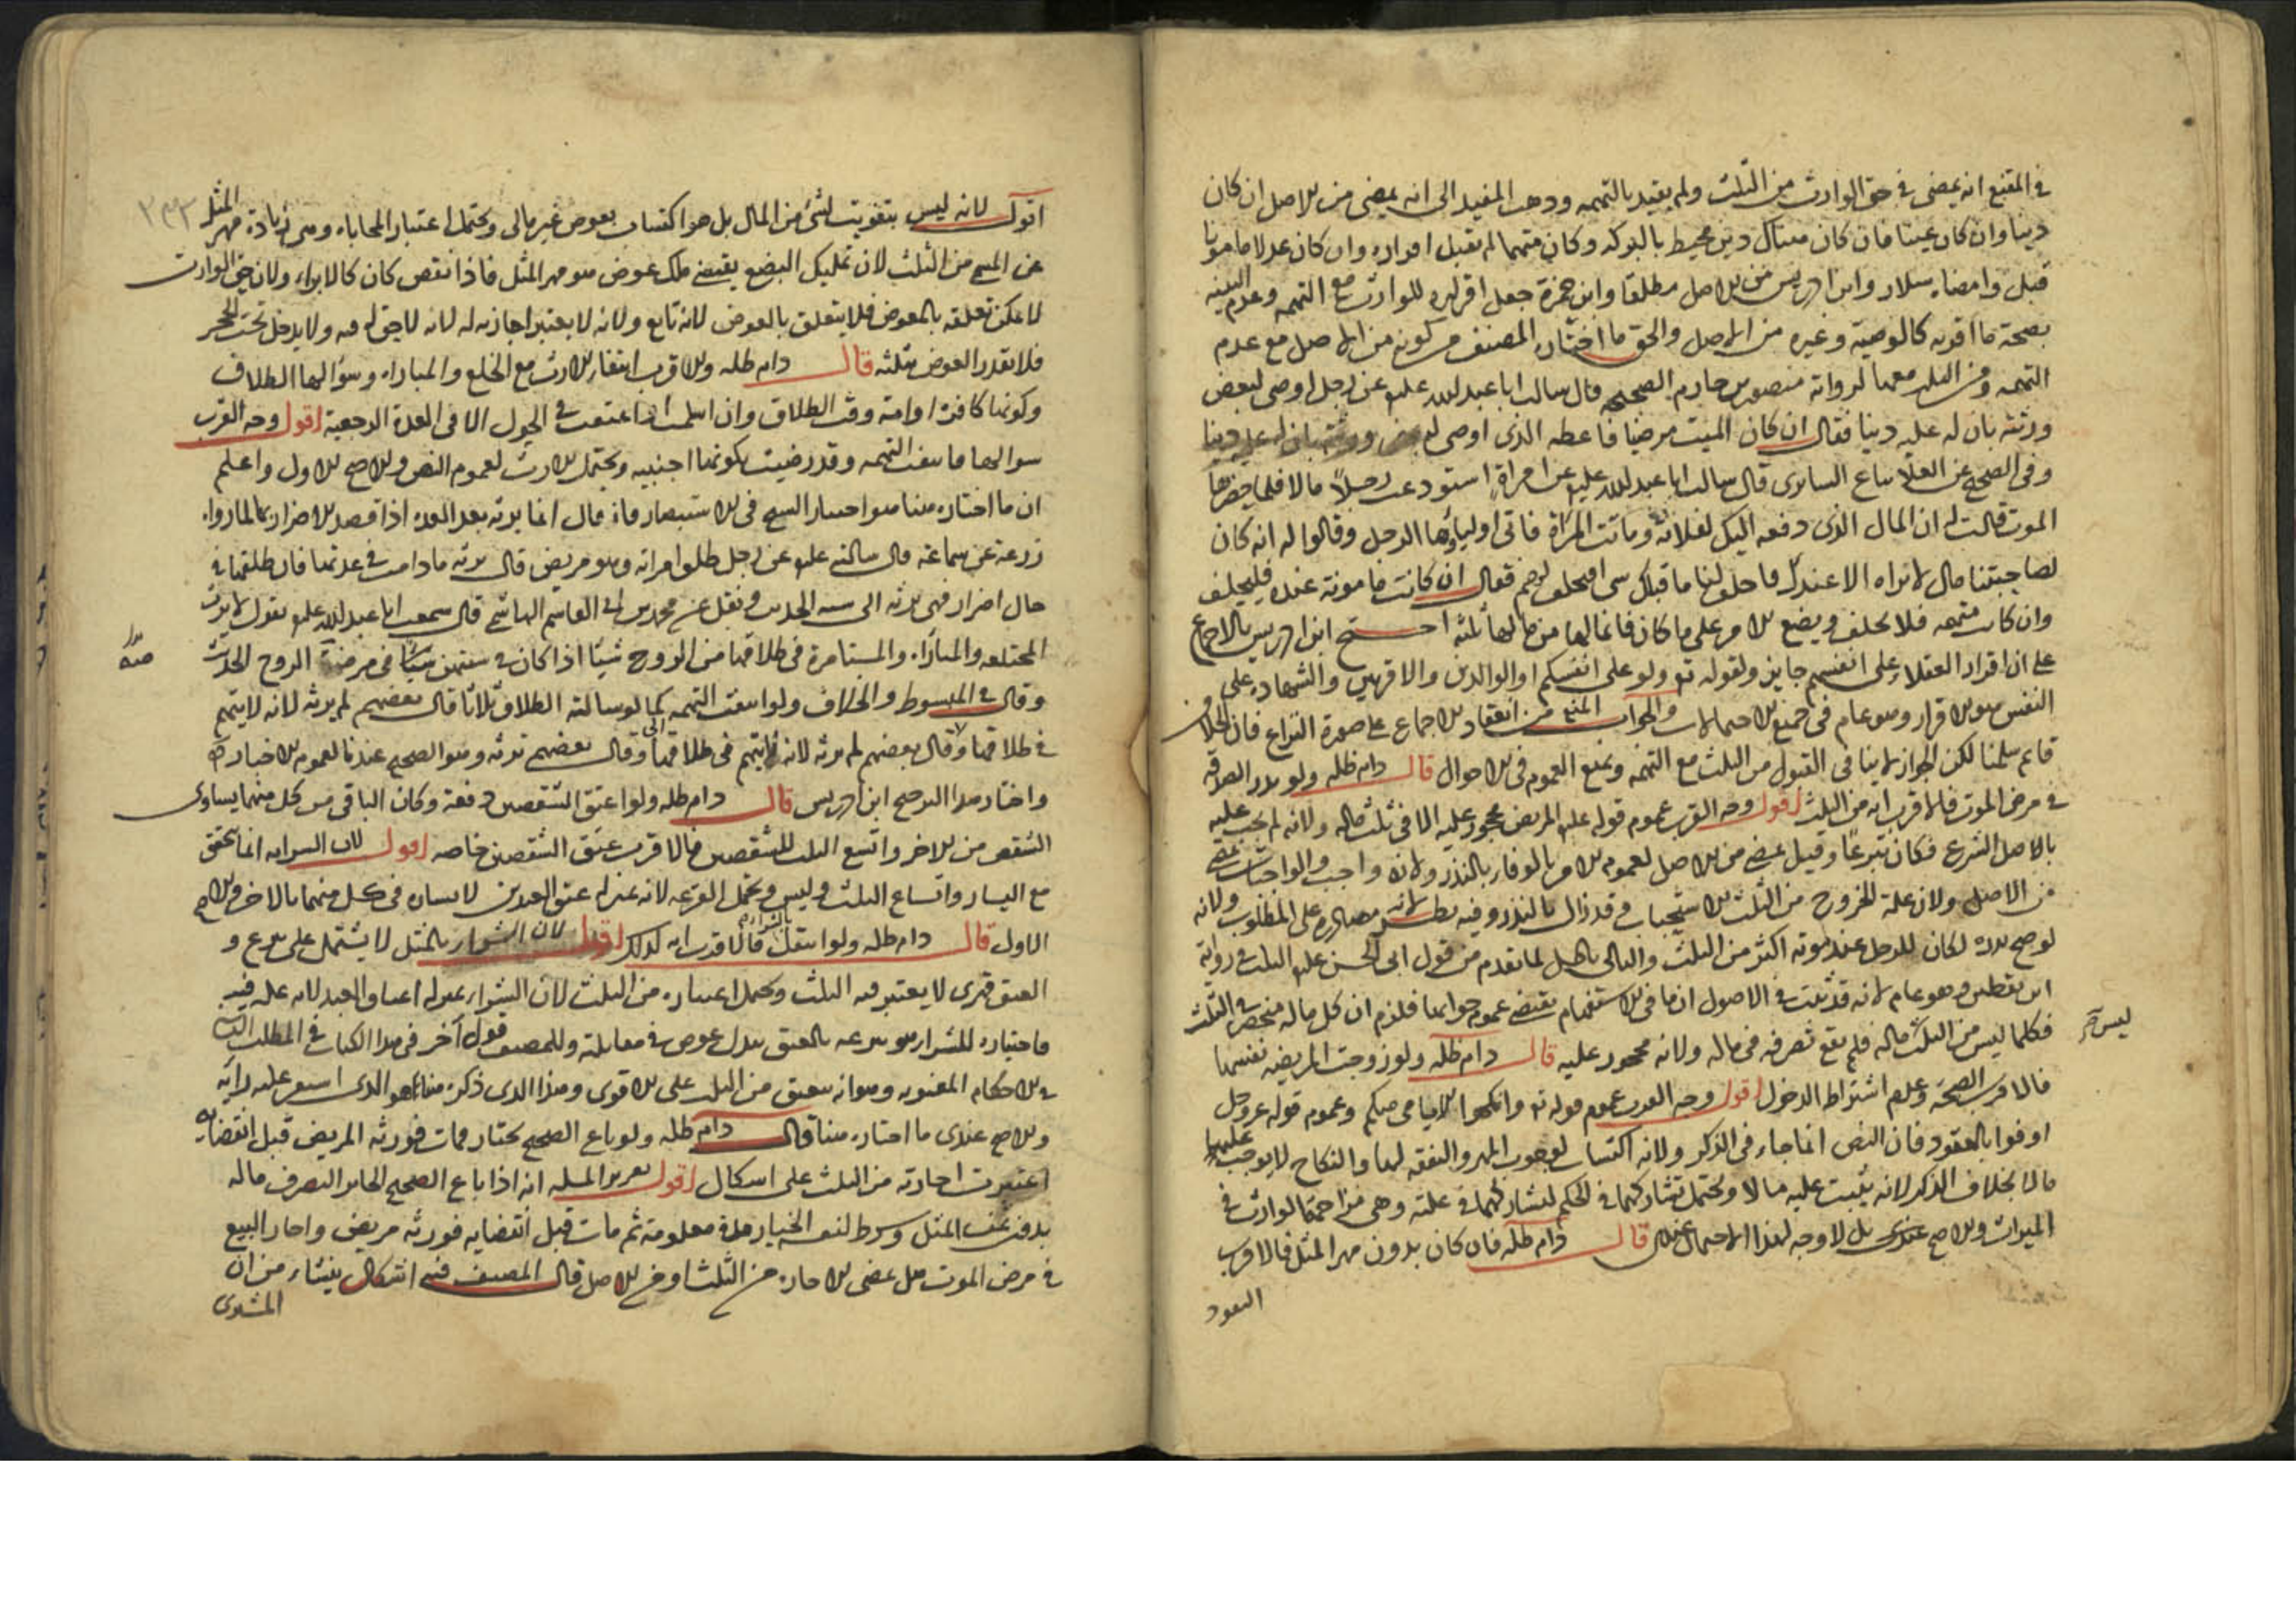 في المقنع انه يمضى في حق الوارث من الثلث ولم يقيد بالتهمه وذهب المفيد الى انه يمضى من الاصل ان كان
دينا وان كان عينا فان كان هناك دين محيط بالتركه وكان متهما لم يقبل اقراره وان كان عدلا مامونا
قبل وامضاه سلار وابن ادريس من الاصل مطلقا وابن حمزة جعل اقراره للوارث مع التهمه وعدم البينه
بصحة ما اقر به كالوصية وغيره من الاصل والحق ما اختاره المصنف من كونه من الاصل مع عدم
التهمه ومن الثلث معها لرواية منصور بن حازم الصحيحه قال سالت ابا عبد الله عليه عن رجل اوصى لبعض
ورثته بان له عليه دينا فقال ان كان الميت مرضيا فاعطه الذى اوصى له
وفى الصحيح عن العلا بياع السابرى قال سالت ابا عبد الله عليه عن امراة استودعت رجلا مالا فلما حضرها
الموت قالت له ان المال الذى دفعته اليك لفلانة وماتت المراة فاتى اولياؤها الرجل وقالوا له انه كان
لصاحبتنا مال لا نراه الا عندك فاحلف لنا ما قبلك شى افيحلف لهم فقال ان كانت مامونة عنده فليحلف
وان كانت متهمه فلا يحلف ويضع الامر على ما كان فانما لها من مالها ثلثه احتج ابن ادريس بالاجماع
على ان اقرار العقلاء على انفسهم جايز ولقوله تع ولو على انفسكم او الوالدين والاقربين والشهاده على
النفس هو الاقرار وهو عام في جميع الاحتمالات والجواب المنع من انعقاد الاجماع على صورة النزاع فان الخلاف
قايم سلمنا لكن الجواز لا ينافى القبول من الثلث مع التهمه ونمنع العموم في الاحوال قال دام ظله ولو نذر الصدقه
في مرض الموت فالاقرب انه من الثلث اقول وجه القرب عموم قوله عليه المريض محجور عليه الا في ثلث ماله ولانه لم يجب عليه
بالاصل الشرع فكان تبرعا وقيل يمضى من الاصل لعموم الامر بالوفاء بالنذر ولانه واجب والواجبات تمضى
من الاصل ولان علة الخروج من الثلث الاستحباب وقد زال بالنذر وفيه نظر لانه مصادره على المطلوب ولانه
لو صح نذره لكان للرجل عند موته اكثر من الثلث والتالى باطل لما تقدم من قول ابى الحسن عليه الثلث في رواية
ابن يقطين وهو عام لانه قد ثبت في الاصول ان ما في الاستفهام يقتضى عموم جوابها فلزم ان كل ماله منحصر في الثلث
فكلما ليس من الثلث ماله فلم يقع تصرفه في ماله ولانه محجور عليه قال دام ظله ولو زوجت المريضه نفسها
ليس
فالاقرب الصحة وعدم اشتراط الدخول اقول وجه القرب عموم قوله تع وانكحوا الايامى منكم وعموم قوله عز وجل
اوفوا بالعقود فان النص انما جاء في الذكر ولانه اكتساب لوجوب المهر والنفقه لها والنكاح لا يوجب عليها
مالا بخلاف الذكر لانه يثبت عليه مالا ويحتمل تشاركهما في الحكم لتشاركهما في علته وهى مزاحمة الوارث في
الميراث والاصح عندى بل لا وجه لهذا الاحتمال عندى قال دام ظله فان كان بدون مهر المثل فالاقرب
النفوذ
٢٣٢
اقول لانه ليس بتفويت لشئ من المال بل هو اكتساب بعوض غير مالى ويحتمل اعتبار المحاباه وهى زيادة مهر المثل
عن المسمى من الثلث لان تمليك البضع يقتضى ملك عوض هو مهر المثل فاذا نقص كان كالابراء ولان حق الوارث
لا يمكن تعلقه بالمعوض فلا يتعلق بالعوض لانه تابع ولانه لا يعتبر اجازته له لانه لا حق له فيه ولا يدخل تحت الحجر
فلا تقدر العوض بثلثه قال دام ظله والاقرب انتفاء الارث مع الخلع والمباراه وسؤالها الطلاق
وكونها كافرة او امة وقت الطلاق وان اسلمت او اعتقت في الحول الا في العدة الرجعية اقول وجه القرب
سوالها فانتفت التهمه وقد رضيت بكونها اجنبيه ويحتمل الارث لعموم النص والاصح الاول واعلم
ان ما اختاره هنا هو اختيار الشيخ في الاستبصار فانه قال انما يرثه بعد العده اذا قصد الاضرار بها لما رواه
زرعة عن سماعة قال سالته عليه عن رجل طلق امراته وهو مريض قال ترثه ما دامت في عدتها فان طلقها في
حال اضرار فهى ترثه الى سنه الحديث ونقل عن محمد بن القاسم الهاشمى قال سمعت ابا عبد الله عليه يقول لا ترث
المختلعه والمباراه والمستامرة في طلاقها من الزوج شيئا اذا كان منهن في مرض الزوج الحديث
وقال في المبسوط والخلاف ولو انتفت التهمه كما لو سالته الطلاق ثلاثا قال بعضهم لم يرثه لانه لا يتهم
في طلاقها وقال بعضهم ترثه وهو الصحيح عندنا لعموم الاخبار
واختار هذا الترجيح ابن ادريس قال دام ظله ولو اعتق الشقصين دفعة وكان الباقى من كل منهما يساوى
الشقص من الاخر واتسع الثلث للشقصين فالاقرب عتق الشقصين خاصه اقول لان السرايه انما تتحقق
مع اليسار واتساع الثلث وليس ويحتمل القرعه لانه بمنزلة عتق العبدين لا يساره في كل منهما بالاخر والاصح
الاول قال دام ظله ولو انتقل بالشراء فالاقرب انه كذلك اقول لان الشراء بالمثل لا يشتمل على تبرع و
العتق قهرى لا يعتبر فيه الثلث ويحتمل اعتباره من الثلث لان الشراء بمنزلة اعتاق العبد لانه علة فيه
فاختياره للشراء هو تبرعه بالعتق ببدل عوض في مقابلته وللمصنف قول آخر في هذا الكتاب في المطلب الثالث
في الاحكام المعنويه وهو انه يعتق من الثلث على الاقوى وهذا الذى ذكره هنا هو الذى استقر عليه رايه
والاصح عندى ما اختاره هنا قال دام ظله ولو باع الصحيح بخيار فمات فورثه المريض قبل انقضايه
اعتبرت اجازته من الثلث على اشكال اقول تحرير المسله انه اذا باع الصحيح الجايز التصرف ماله
بدون ثمن المثل وشرط لنفسه الخيار مدة معلومة ثم مات قبل انقضايه فورثه مريض واجاز البيع
في مرض الموت هل يمضى الاجازه من الثلث او من الاصل قال المصنف فيه اشكال ينشاء من ان
المشترى